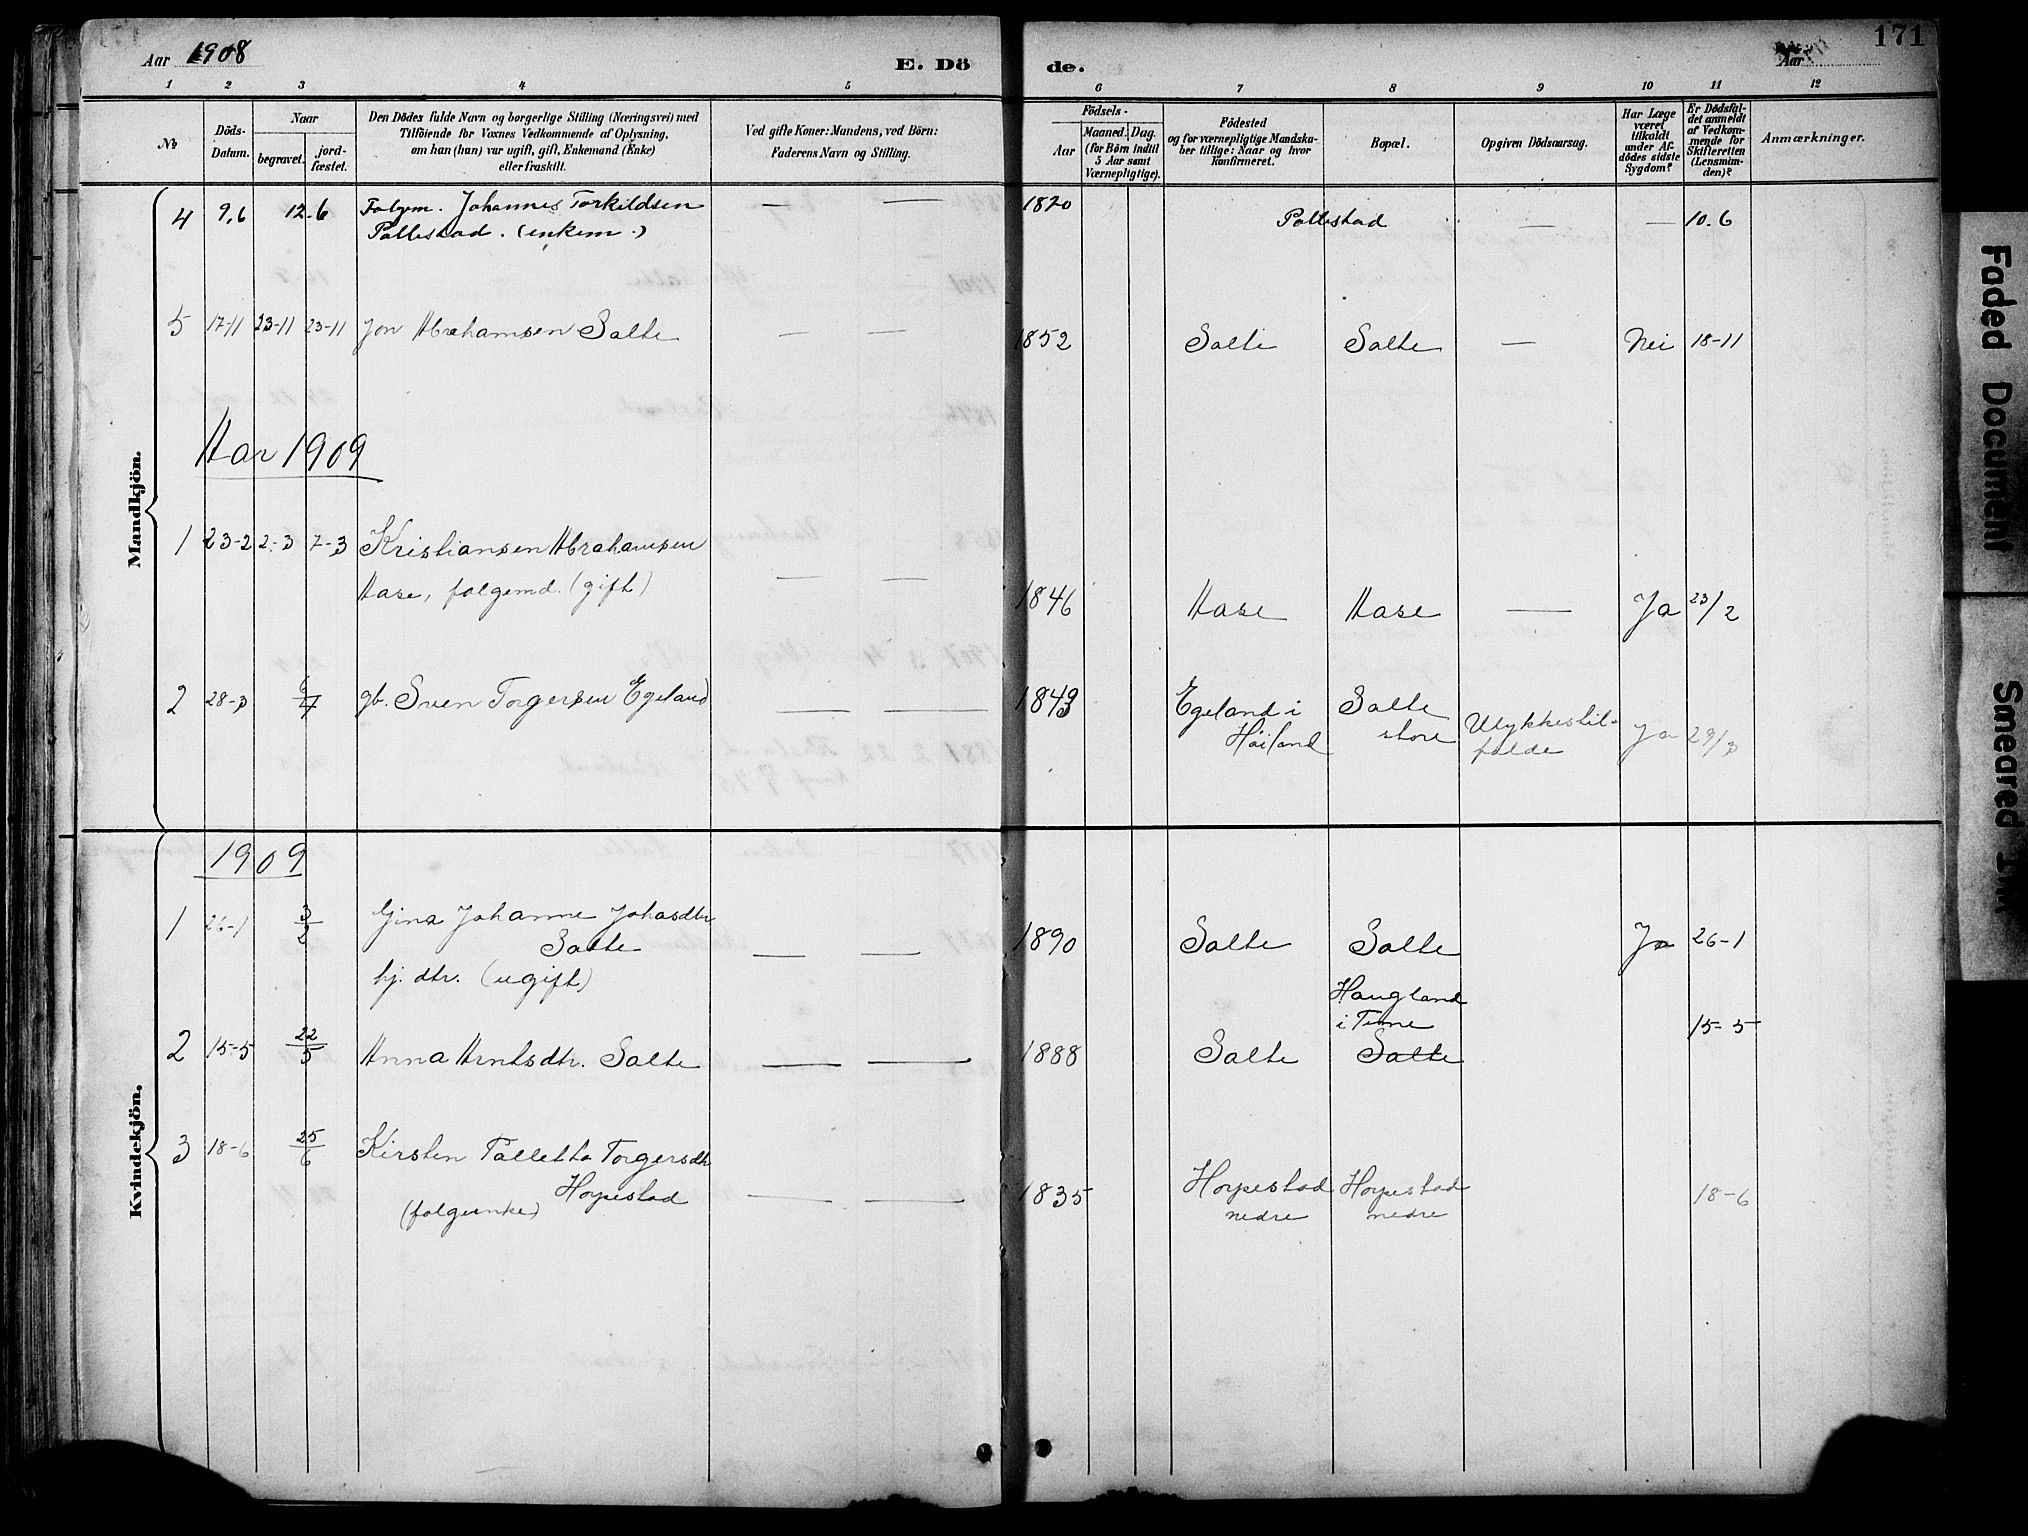 Aar 1908
E. Dö
de.
Aar
171
1 2 3 4 5 6 7 8 9 10 11 12
No
Döds-Datum.
Naar
begravet.
jord-fæstet.
Den Dödes fulde Navn og borgerlige Stilling (Næringsvei) med
Tilföiende for Voxnes Vedkommende af Oplysning,
om han (hun) var ugift, gift, Enkemand (Enke)
eller fraskilt.
Ved gifte Koner: Mandens, ved Börn:
Faderens Navn og Stilling.
Födsels-
Aar
Maaned. Dag.
(for Börn indtil
5 Aar samt
Værnepligtige).
Födested
og for værnepligtige Mandska-
ber tillige: Naar og hvor
konfirmeret.
Bopæl.
Opgiven Dödsaarsag.
Har Læge
været
tilkaldt
under Af-
dödes sidste
Sygdom?
Er Dödsfal-
det anmeldt
af Vedkom-
mende for
Skifteretten
(Lensman-
den)?
Anmærkninger.
Mandkjön.
4 9.6 12.6 Folgm. Johannes Torkildsen — — 1820
Pollestad. (enkem.) Pollestad — — 10.6
5 17-11 23-11 23-11 Jon Abrahamsen Salte — — 1852 Salte Salte — Nei 18-11
Aar 1909
1 23-2 2-3 7-3 Kristiansen Abrahamsen
Aase, folgemd. (gift) — — 1846 Aase Aase — Ja 23/2
2 28-3 6/4 gb. Sven Torgersen Egeland — — 1843 Egeland i Salte
Höiland store Ulykkestil-
falde Ja 29/3
Kvindekjön.
1909
1 26-1 3/2 Gina Johanne Johasdtr
Salte — — 1890 Salte Salte Ja 26-1
hj. dtr. (ugift)
Haugland
i Time 15-5
2 15-5 22/5 Anna Arntsdtr. Salte — — 1888 Salte Salte
3 18-6 25/6 Kirsten Talletta Torgersdtr
Horpestad — — 1835 Horpestad Horpestad 18-6
(folgeenke) nedre nedre
Faded Document
Smeared Ink